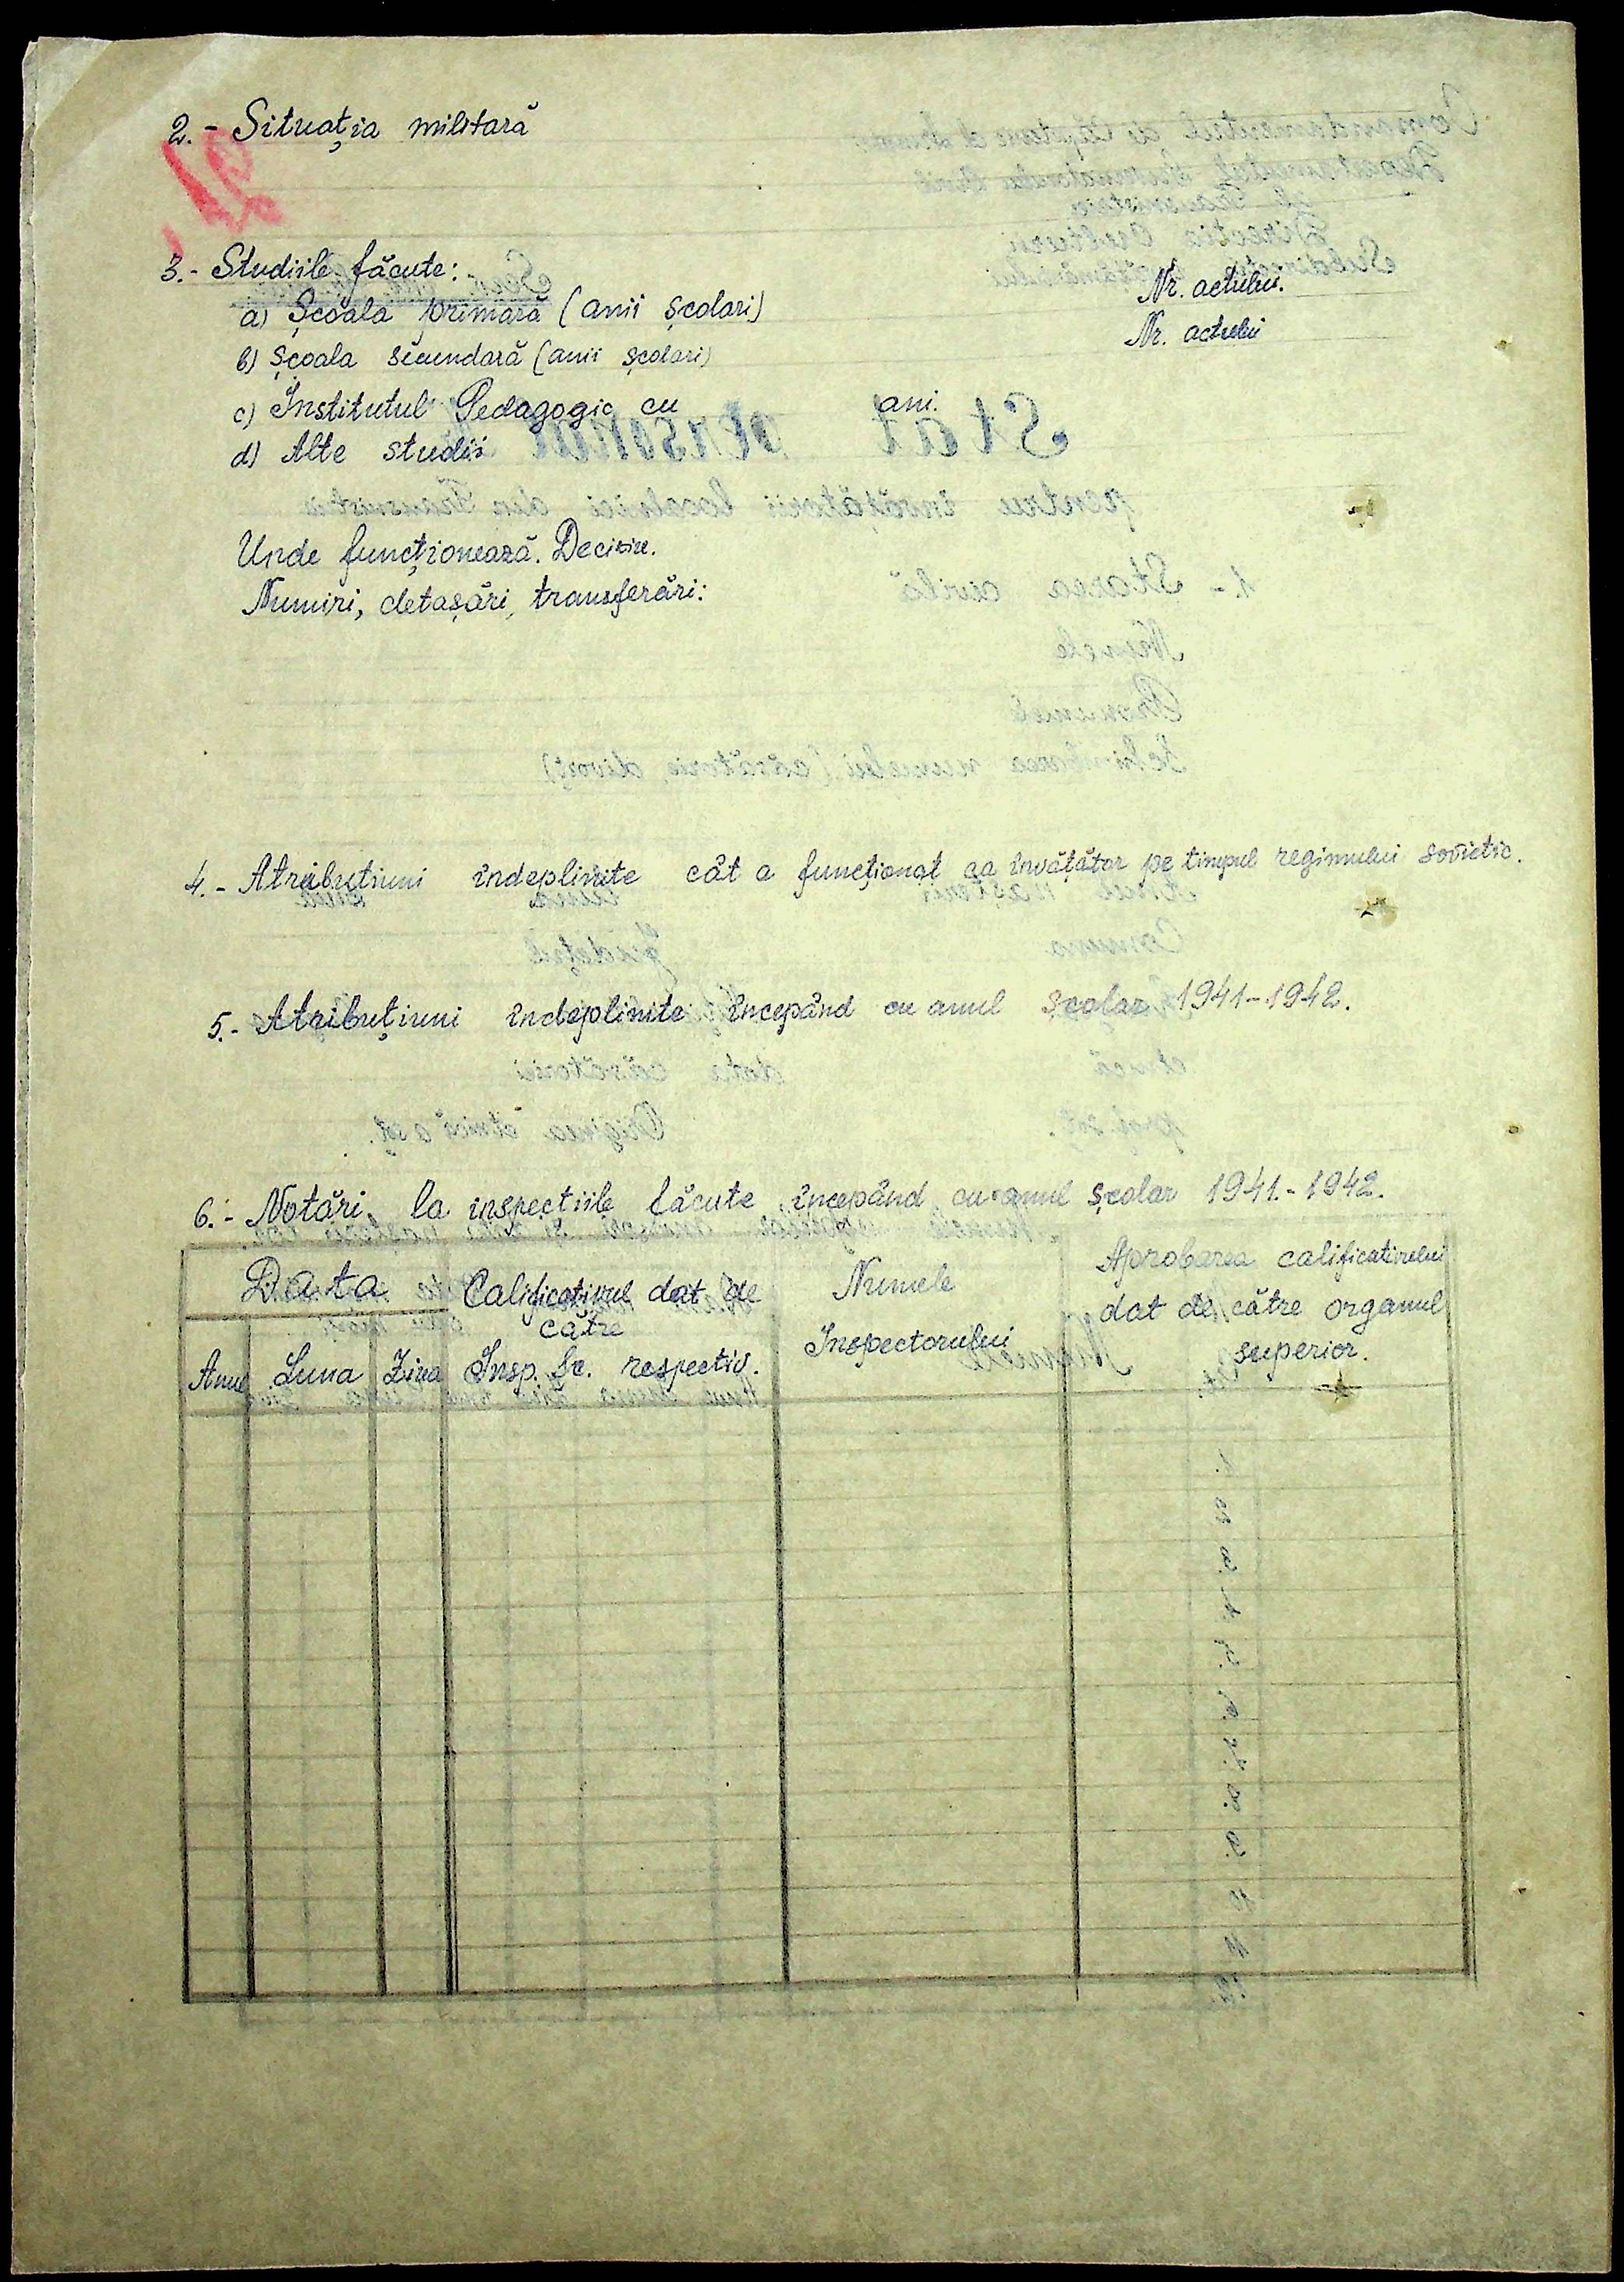 2.- Situația militară
3.- Studiile făcute:
a) Școala primară (anii școlari) Nr. actului.
b) Școala secundară (anii școlari) Nr. actului
c) Institutul Pedagogic cu ani.
d) Alte studii
Unde funcționează. Decizie.
Numiri, detașări, transferări:
4.- Atribuțiuni îndeplinite cât a funcționat ca învățător pe timpul regimului sovietic.
5.- Atribuțiuni îndeplinite începând cu anul școlar 1941-1942.
6.- Notări la inspecțiile făcute începând cu anul școlar 1941.-1942.
Data
Anul Luna Ziua
Calificativul dat de
către
Insp. Sc. respectiv.
Numele
Inspectorului
Aprobarea calificativului
dat de către organul
superior.